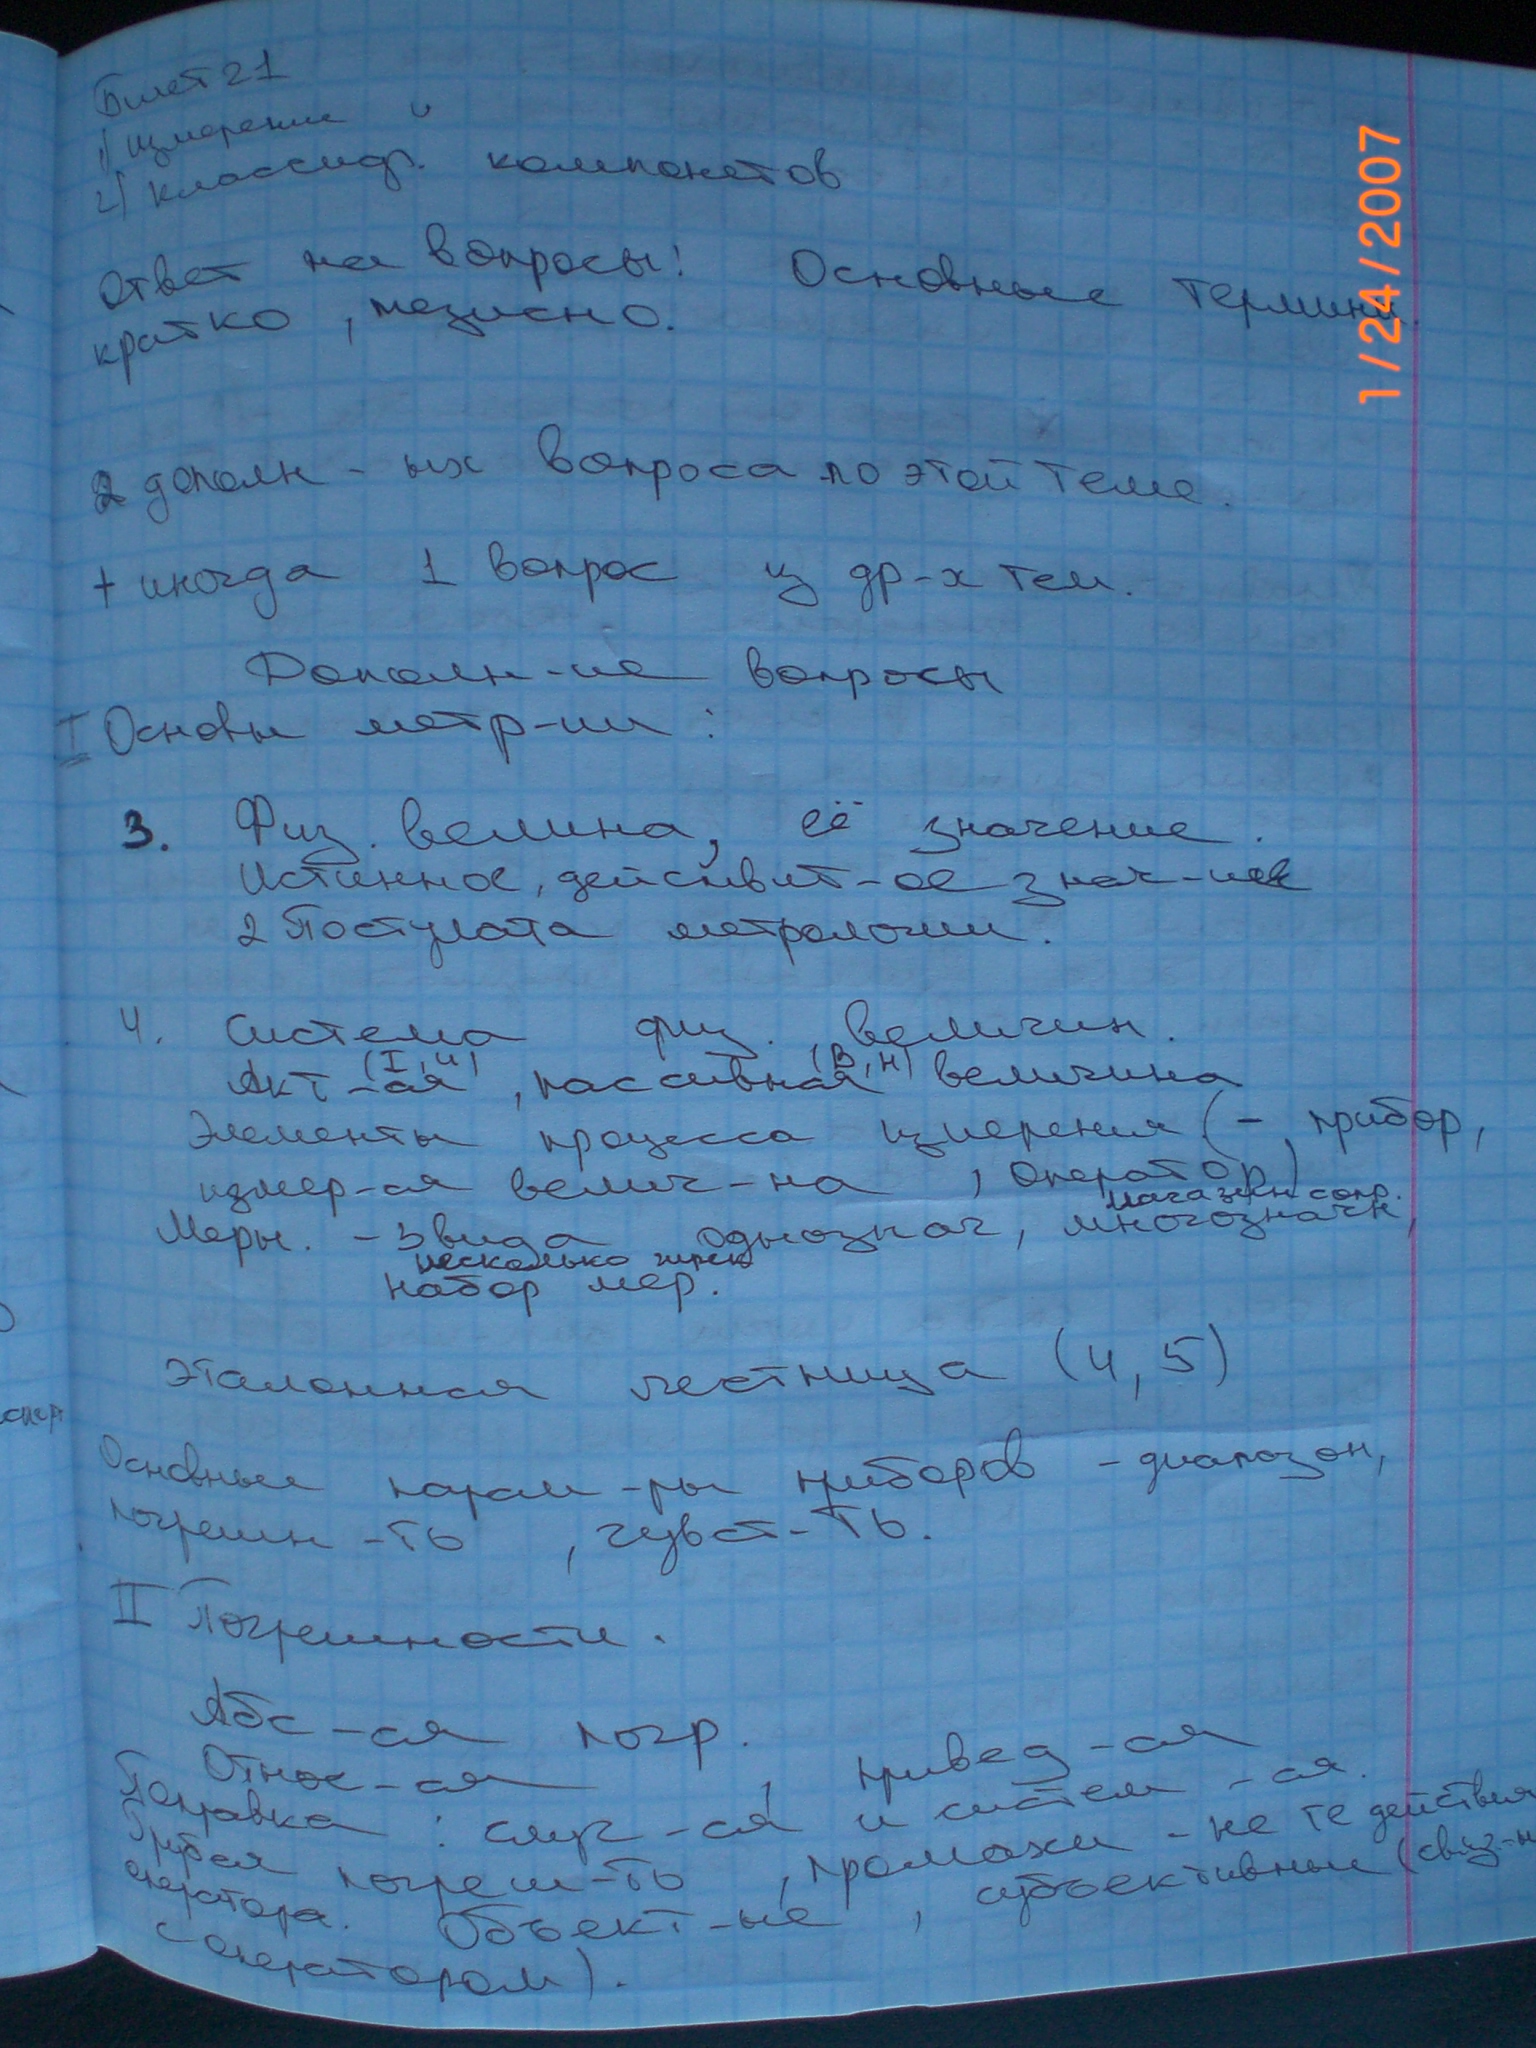 Билет 21
1) Измерение и
2) классиф. компонетов
Ответ на вопросы! Основные термины.
кратко, тезисно.
2 дополн-ых вопроса по этой теме.
+ иногда 1 вопрос из др-х тем.
Дополн-ие вопросы
I Основы метр-ии:
3. Физ. велина, её значение.
Истинное, действит-ое знач-ие
2 Постулата метрологии.
4. Система физ. величин.
(I, u) (В, н)
Акт-ая, пассивная величина
Элементы процесса измерения (-, прибор,
измер-ая велич-на, оператор)
магазин сопр.
Меры. - 3 вида однознач, многозначн,
несколько гирек
набор мер.
Эталонная лестница (4, 5)
Основные парам-ры приборов - диапазон,
погрешн-ть, чувст-ть.
II Погрешности.
Абс-ая погр.
Относ-ая, привед-ая
Поправка: случ-ая и систем-ая.
Грубая погреш-ть, промахи - не те действия
оператора. Объект-ые, субъективные (связ-н
с оператором).
1/24/2007